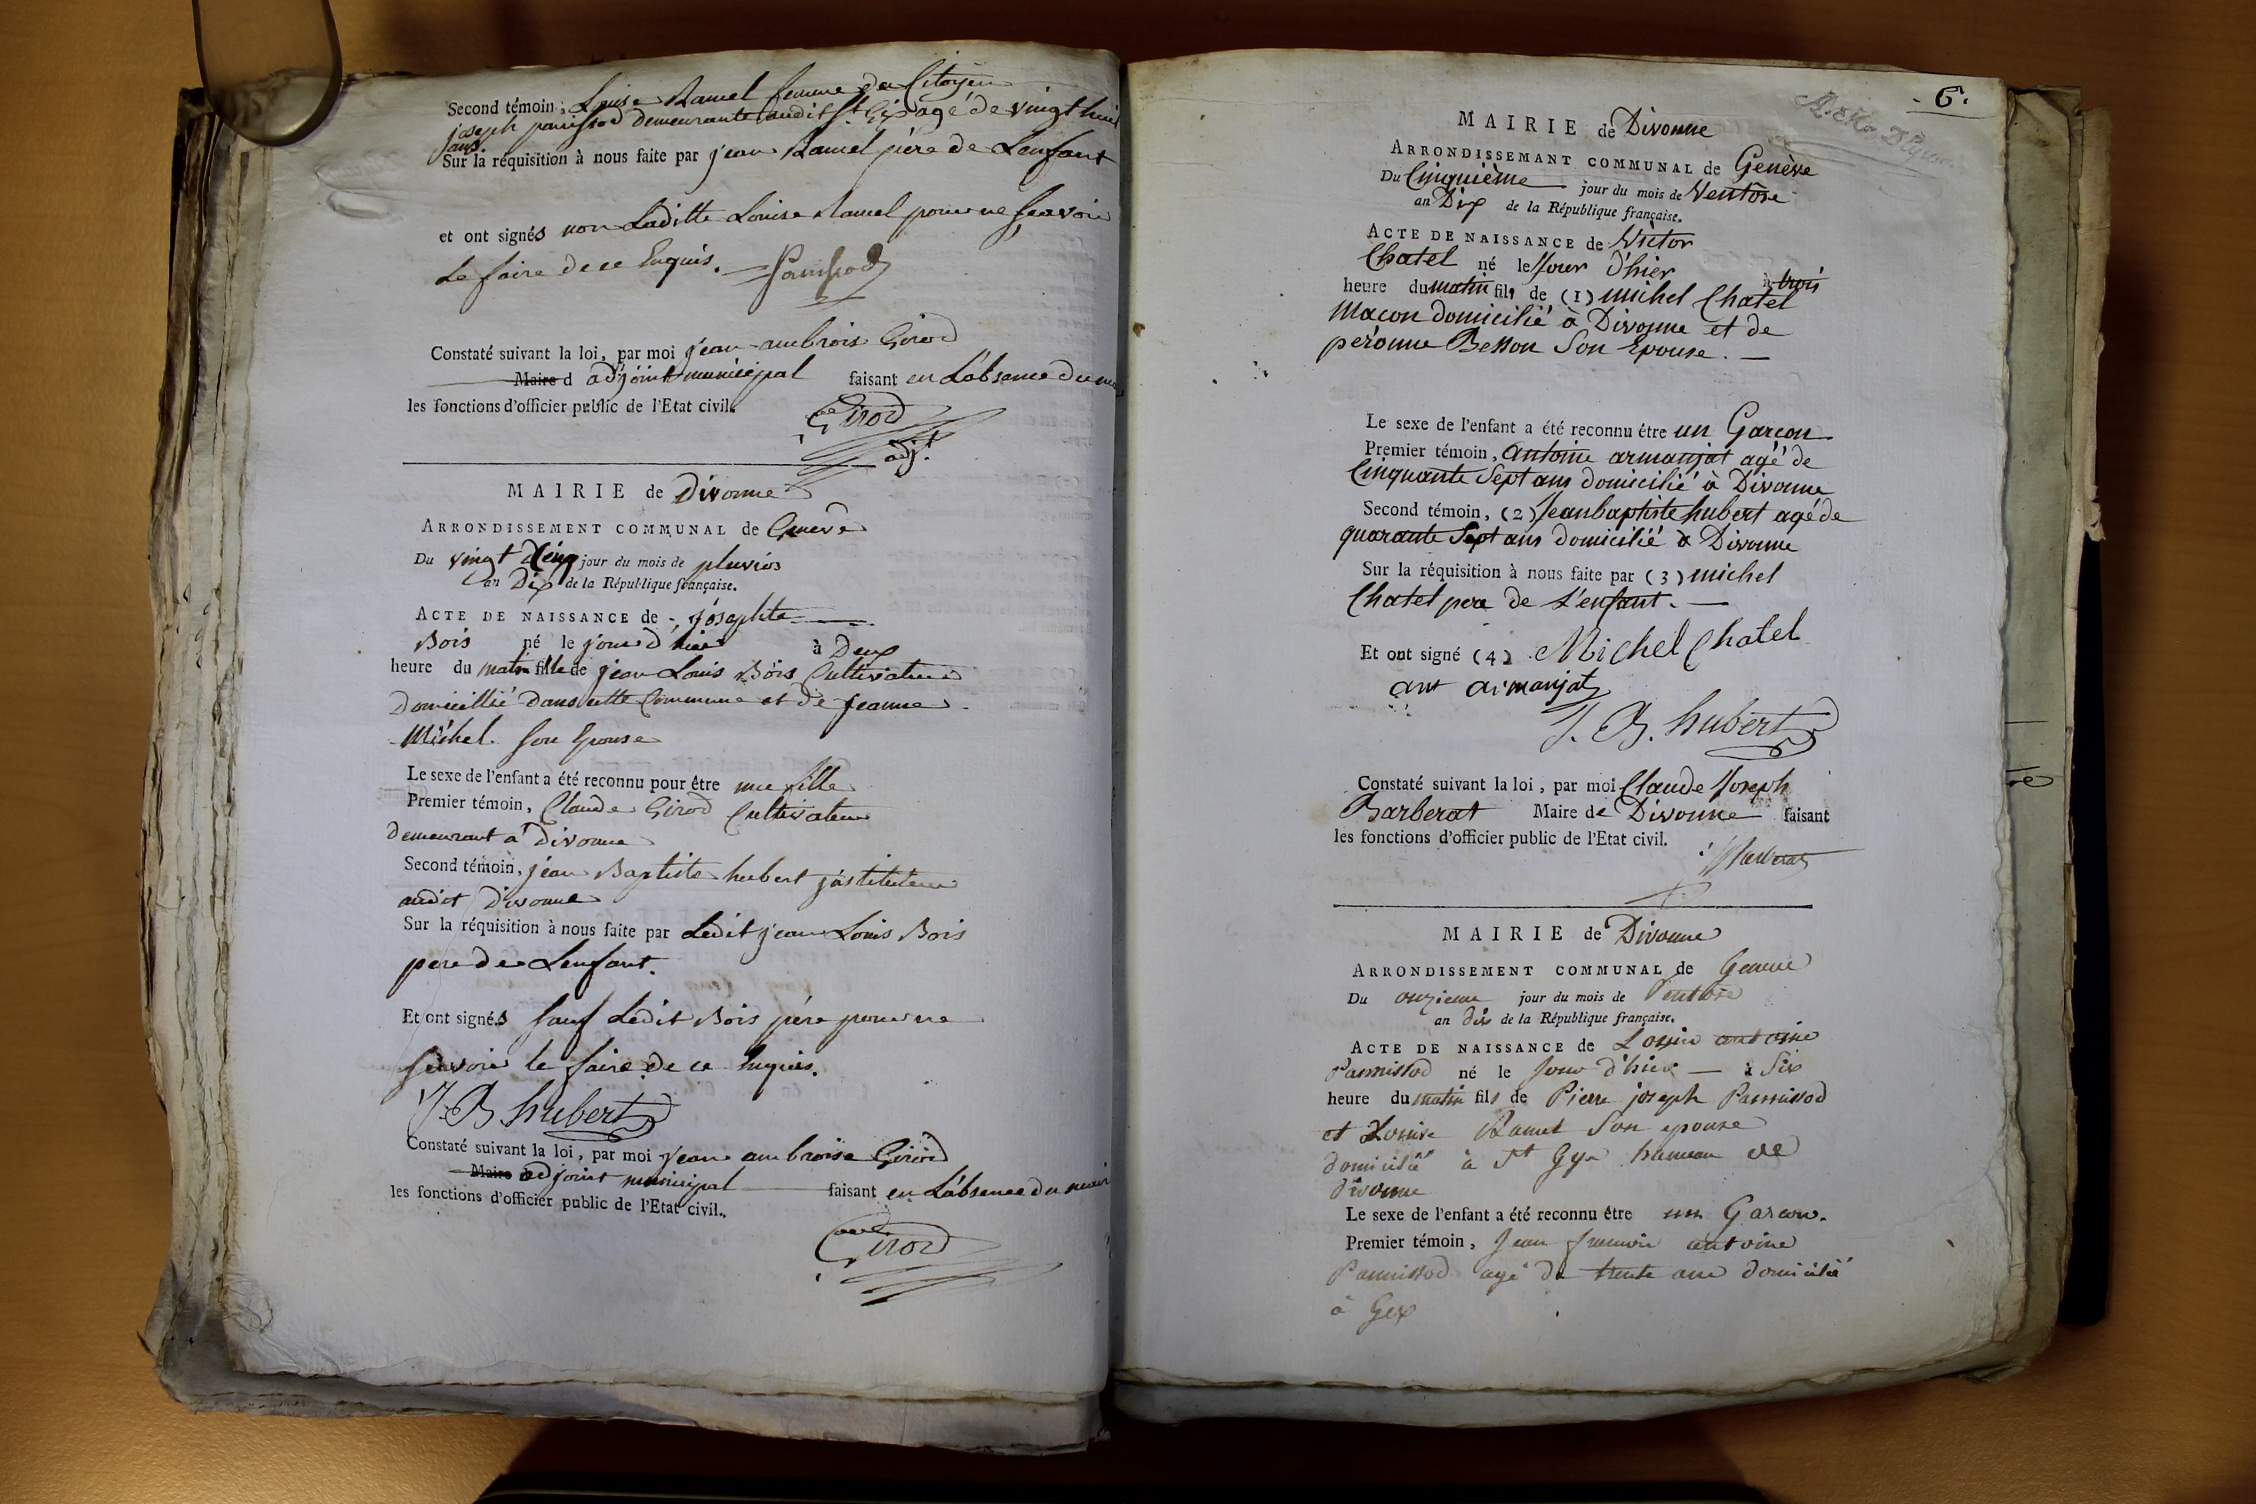 Second témoin, Louise Ramel femme du Citoyen
joseph panissod demeurante audit St. Gix agé de vingt huit
ans
Sur la réquisition à nous faite par jean Ramel père de Lenfant
et ont signés non Laditte Louise Ramel pour ne scavoir
le faire de ce Enquis. Panissod
Constaté suivant la loi, par moi jean ambrois Girod
Maire d adjoint municipal faisant en L'absence du
les fonctions d'officier public de l'Etat civil.
Girod
adj.t
MAIRIE de Divonne
ARRONDISSEMENT COMMUNAL de Genève
Du vingt Cinq jour du mois de pluvios
an Dix de la République française.
ACTE DE NAISSANCE de josephte
Bois né le jour d'hier à Deux
heure du matin fille de jean Louis Bois Cultivateur
domicillié dans cette Commune et de jeanne
Michel son Epouse
Le sexe de l'enfant a été reconnu pour être une fille
Premier témoin, Claude Girod Cultivateur
demeurant a Divonne
Second témoin, jean Baptiste hubert jnstituteur
audit Divonne
Sur la réquisition à nous faite par Ledit jean Louis Bois
pere de Lenfant.
Et ont signés sauf Ledit Bois père pour ne
scavoir le faire de ce Enquis.
J. B hubert
Constaté suivant la loi, par moi jean ambroise Girod
Maire adjoint municipal faisant en L'absence du mair
les fonctions d'officier public de l'Etat civil.
Girod
6.
MAIRIE de Divonne
ARRONDISSEMANT COMMUNAL de Genève
Du Cinquième jour du mois de Ventôse
an Dix de la République française.
ACTE DE NAISSANCE de Victor
Chatel né le Jour d'hier à trois
heure du matin fils de (1) michel Chatel
Macon domicilié à Divonne et de
péronne Besson Son Epouse.
Le sexe de l'enfant a été reconnu être un Garcon
Premier témoin, antoine armanjat agé de
Cinquante Sept ans domicilié à Divonne
Second témoin, (2) Jean baptiste hubert agé de
quarante Sept ans domicilié à Divonne
Sur la réquisition à nous faite par (3) michel
Chatel pere de L'enfant.
Et ont signé (4) Michel Chatel
ant armanjat
J. B. hubert
Constaté suivant la loi, par moi Claude Joseph
Barberat Maire de Divonne faisant
les fonctions d'officier public de l'Etat civil.
Barberat
MAIRIE de Divonne
ARRONDISSEMENT COMMUNAL de Geneve
Du onzieme jour du mois de Ventose
an dix de la République française.
ACTE DE NAISSANCE de antoine
Pannissod né le Jour d'hier à Six
heure du matin fils de Pierre joseph Pannissod
et Louise Ramel Son epouse
domicilié à St Gyx hameau de
Divonne
Le sexe de l'enfant a été reconnu être un Garcon.
Premier témoin, Jean antoine
Pannissod agé de trente ans domicilié
à Gex